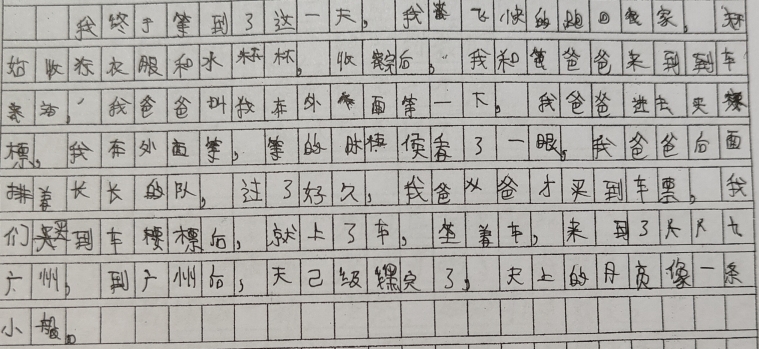 我终于等到了这一天，我飞快的跑回家，开
始收标衣服和水杯，收完后，我和爸爸来到到车
站，我爸爸叫我在外面等一下，我爸爸进去买
标，我在外面等，等的时候看了一眼，我爸爸后面
排着长长的队，过了好久，我爸爸才买到车票，我
们买到车标后，就上了车，坐着车，来到了
广州，到广州后，天己级黑完了，天上的月亮像一条
小船。